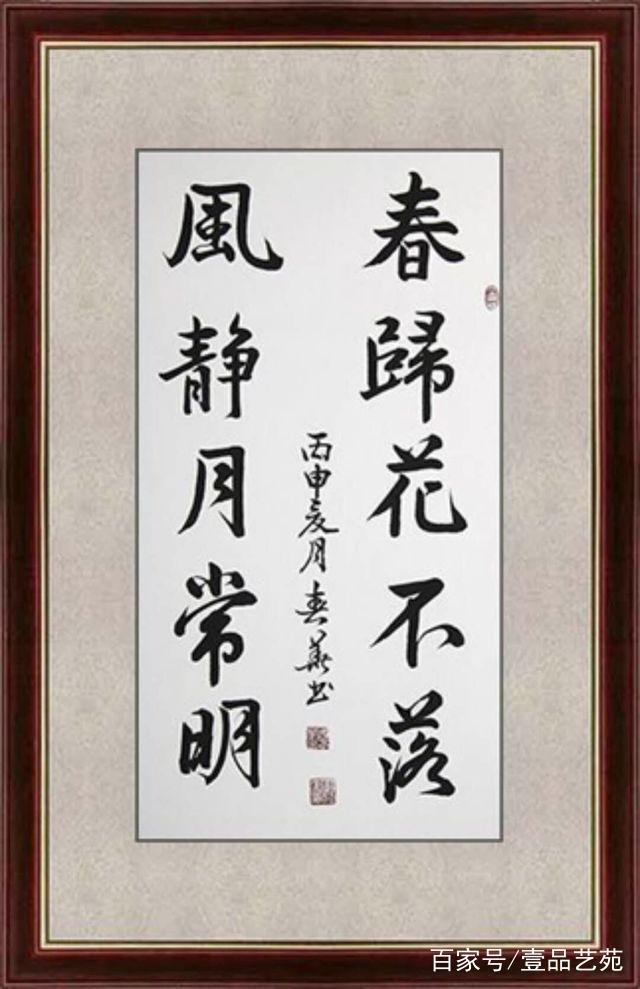 春歸花不落
風静月常明
丙申夏月春華书
百家号/壹品艺苑